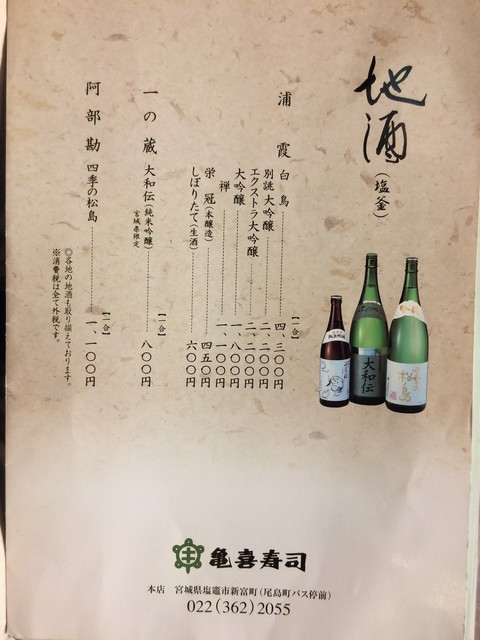 地酒(塩釜)
浦霞 白鳥 【一合】 四、三〇〇円
別誂 大吟醸 二、二〇〇円
エクストラ大吟醸 二、二〇〇円
大吟醸 一、八〇〇円
禅 一、一〇〇円
栄冠(本醸造) 四五〇円
しぼりたて(生酒) 六〇〇円
一の蔵 大和伝(純米吟醸) 【一合】 八〇〇円
宮城県限定
阿部勘 四季の松島 【一合】 一、一〇〇円
◎各地の地酒も取り揃えております。
※消費税は全て外税です。
大和伝
松島
亀喜寿司
本店 宮城県塩竈市新富町(尾島町バス停前)
022(362)2055